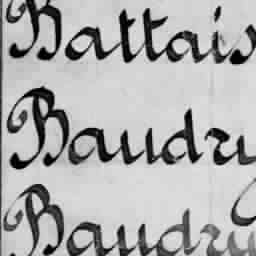 Battais
Baudry
Baudry